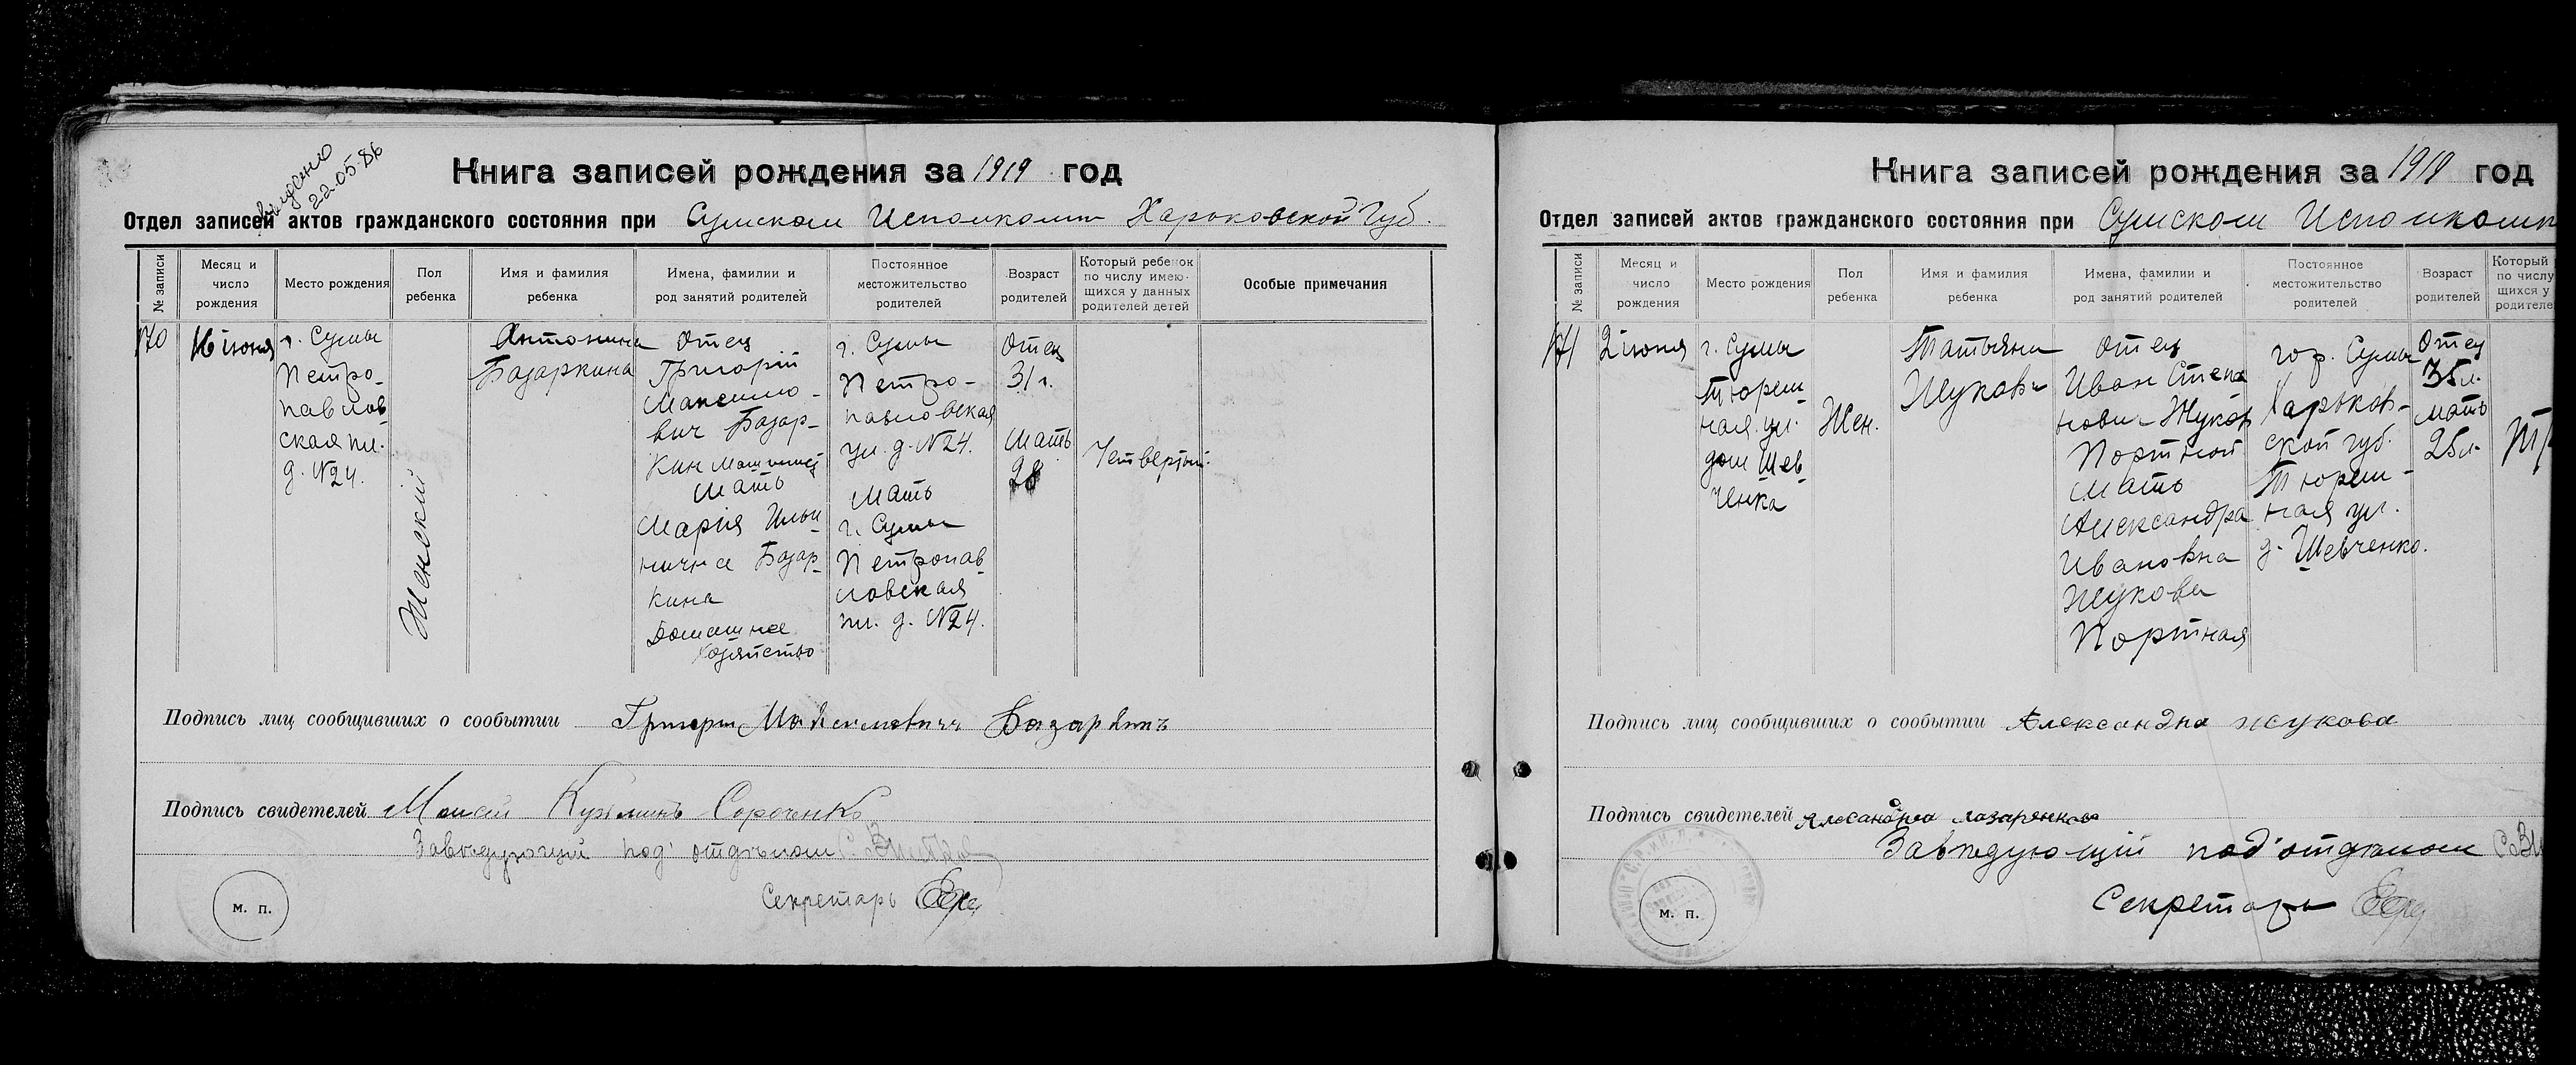 выдано
22.05.86
Книга записей рождения за 1919 год
Отдел записей актов гражданского состояния при Сумском Исполкоме Харьковской Губ.
№ записи
Месяц и
число
рождения
Место рождения
Пол
ребенка
Имя и фамилия
ребенка
Имена, фамилии и
род занятий родителей
Постоянное
местожительство
родителей
Возраст
родителей
Который ребенок
по числу имею-
щихся у данных
родителей детей
Особые примечания
170
16 июня
г. Сумы
Петро-
павлов
ская пл.
д. №24.
Женскій
Антонина
Базаркина
Отец
Григорій
Максимо-
вич Базар-
кин Машинист
Мать
Марія Ильи
нична Базар-
кина
Домашнее
хозяйство
г. Сумы
Петро-
павловская
ул. д. №24.
Мать
г. Сумы
Петропав
ловская
пл. д. №24.
Отец
31 г.
Мать
28
Четвертый.
Подпись лиц сообщивших о сообытии Григорій Максимовичъ Базаркинъ
Подпись свидетелей Кузьминъ Сороченко
Завѣдующій под'отдѣлом
Секретарь
м. п.
Книга записей рождения за 1919 год
Отдел записей актов гражданского состояния при Сумском Исполкоме
№ записи
Месяц и
число
рождения
Место рождения
Пол
ребенка
Имя и фамилия
ребенка
Имена, фамилии и
род занятий родителей
Постоянное
местожительство
родителей
Возраст
родителей
Который
по числу
щихся у
родителей
171
2 июня
г. Сумы
Тюрем
ная ул.
дом Шев
ченка
Жен.
Татьяна
Жукова
Отец
Иван Степа
нович Жуков
Портной
Мать
Александра
Ивановна
Жукова
Портная
гор. Сумы
Харьков-
ской губ.
Тюрем-
ная ул.
д. Шевченко.
Отец
35 л.
мать
25 л.
Подпись лиц сообщивших о сообытии Александра жукова
Подпись свидетелей Александра лазаренкова
Завѣдующій под'отделом
Секретарь
м. п.